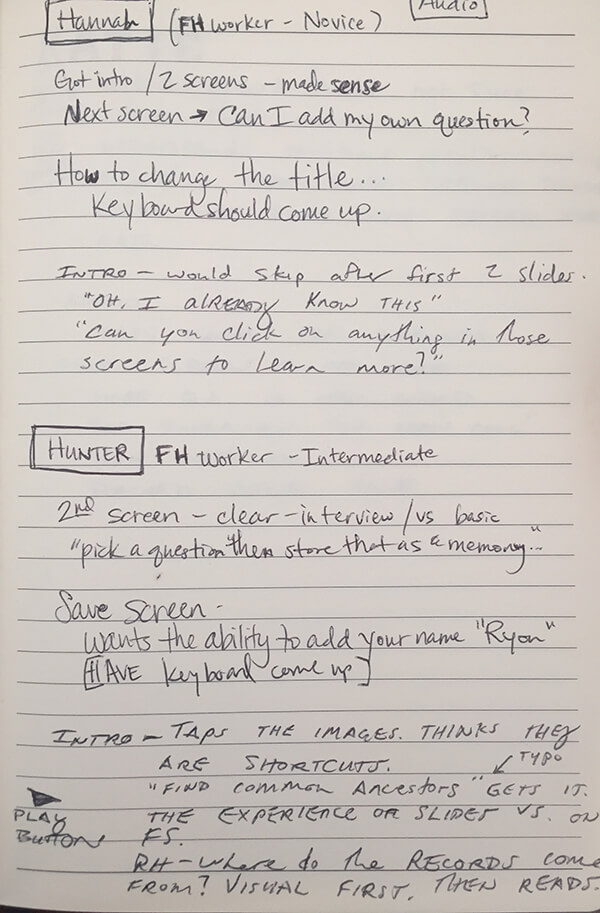 Audio
Hannah (FH worker - Novice)
Got intro / 2 screens - made sense
Next screen → Can I add my own question?
How to change the title...
Keyboard should come up.
INTRO - would skip after first 2 slides.
"OH, I alREADY KNOW THIS"
"Can you click on anything in those
screens to learn more?"
HUNTER FH worker - Intermediate
2nd screen - clear - interview / vs basic
"pick a question then store that as a memory..."
Save screen -
Wants the ability to add your name "Ryon"
[HAVE keyboard come up]
INTRO - TAPS THE IMAGES. THINKS THEY
ARE SHORTCUTS.
↙ TYPO
"FIND COMMON ANCESTORS" GETS IT.
▶ PLAY BUTTON
THE EXPERIENCE OR SLIDES VS. ON
FS.
RH - Where do the RECORDS COME
FROM? VISUAL FIRST. THEN READS.